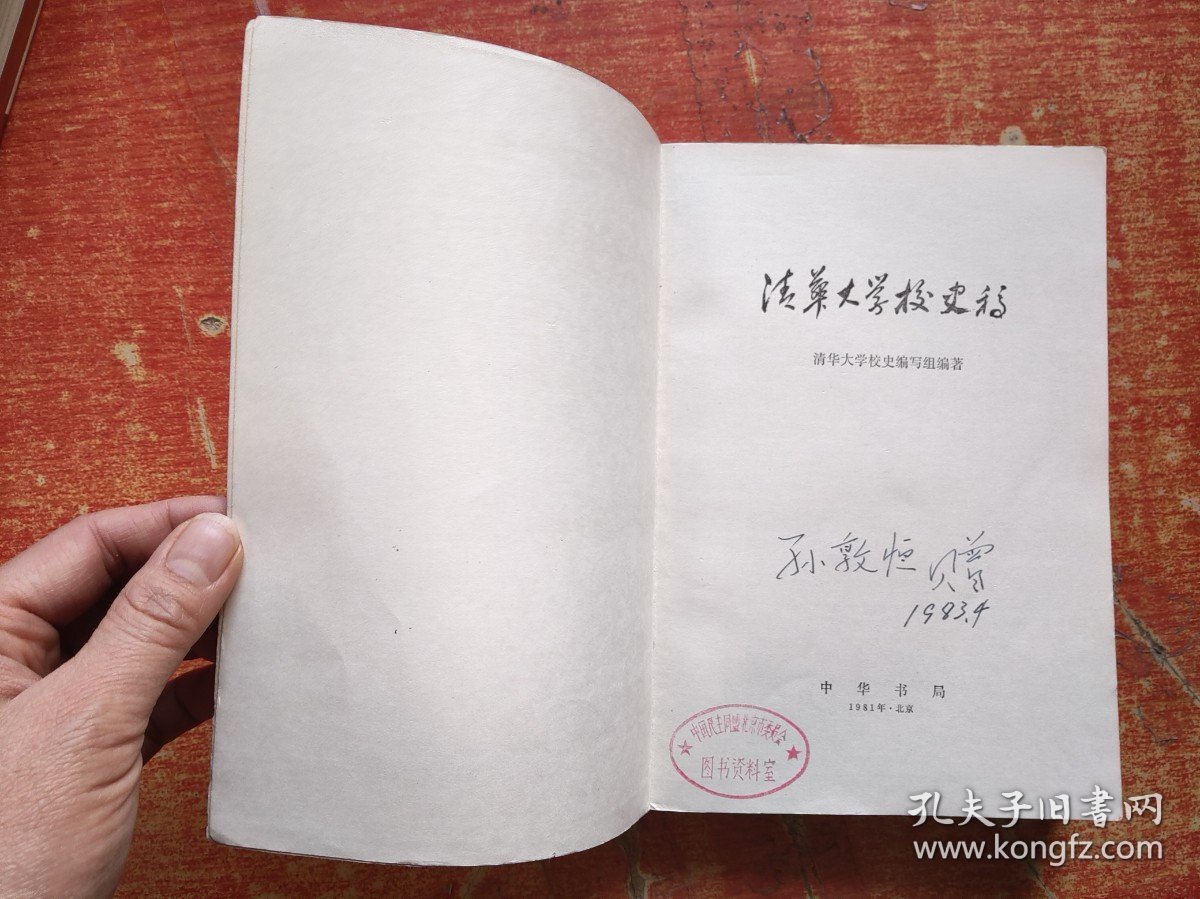 清华大学校史稿
清华大学校史编写组编著
孙敦恒 赠
1983.4
中华书局
1981年·北京
中国民主同盟北京市委员会
图书资料室
孔夫子旧书网
www.kongfz.com